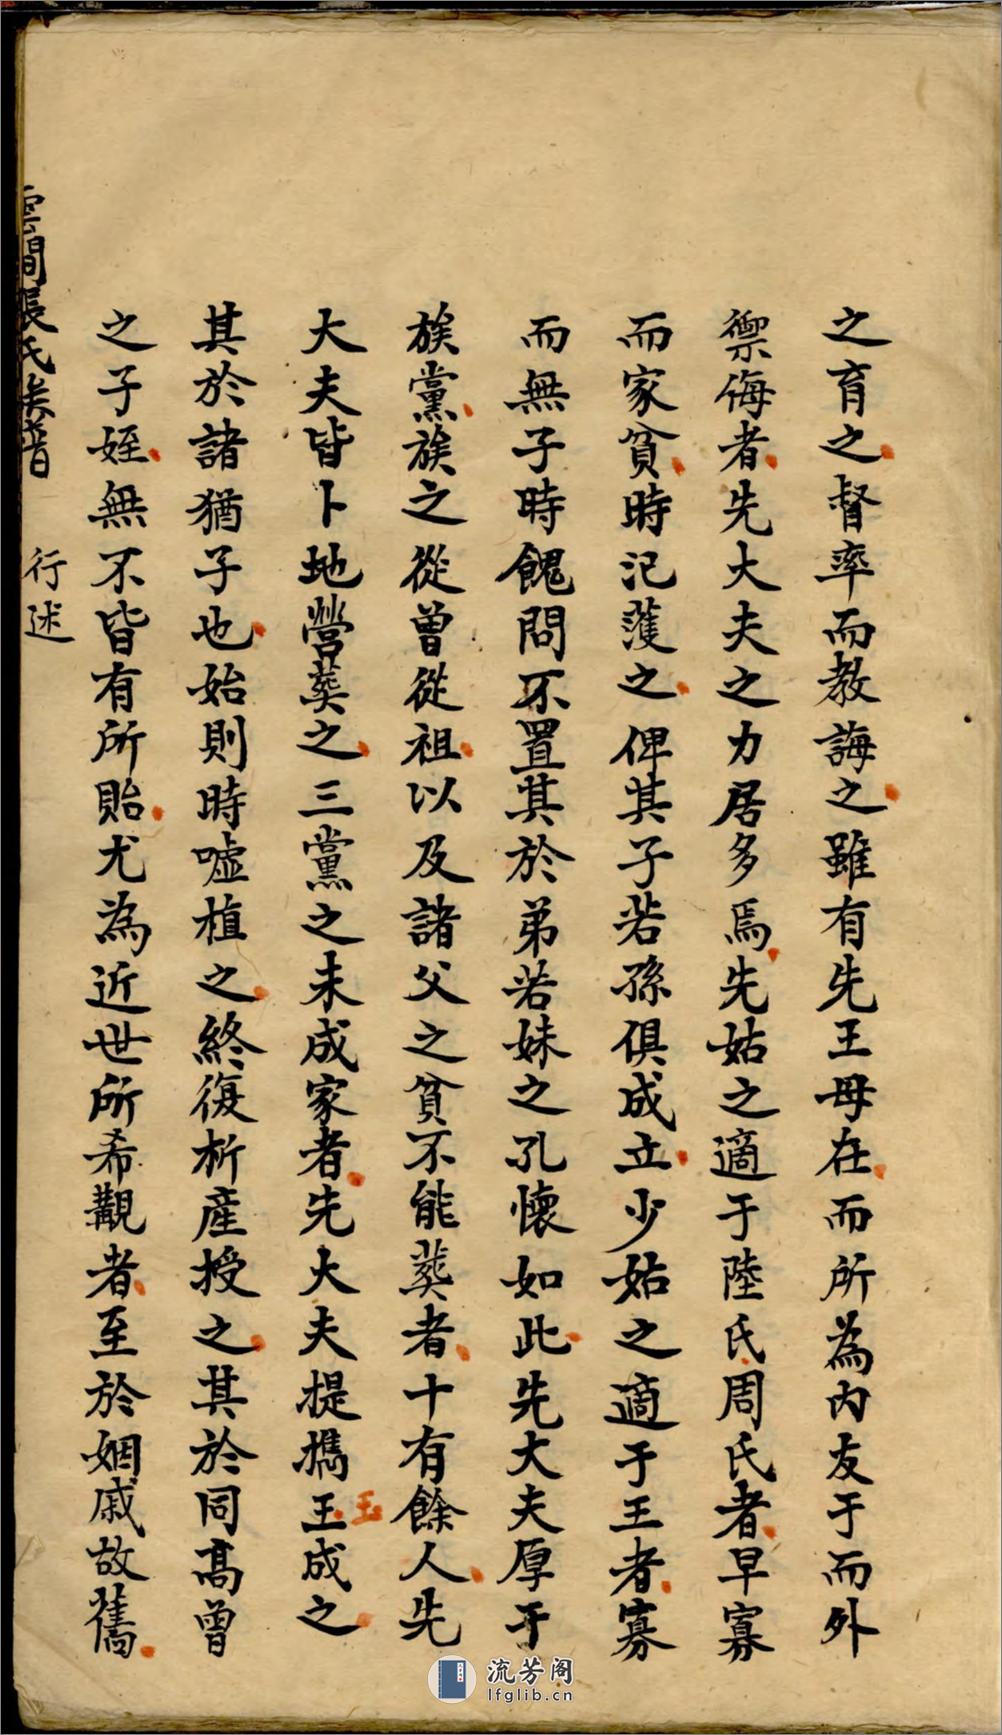 之育之督率而教誨之雖有先王母在而所為內友于而外
禦侮者先大夫之力居多焉先姑之適于陸氏周氏者早寡
而家貧時汜蒦之俾其子若孫俱成立少姑之適于王者寡
而無子時餽問不置其於弟若妹之孔懷如此先大夫厚于
族黨族之從曾從祖以及諸父之貧不能葬者十有餘人先
大夫皆卜地營葬之三黨之未成家者先大夫提攜王成之
玉
其於諸猶子也始則時噓植之終復析產授之其於同高曾
之子姪無不皆有所貽尤為近世所希覯者至於姻戚故舊
雲間張氏族譜 行述
流芳阁
lfglib.cn